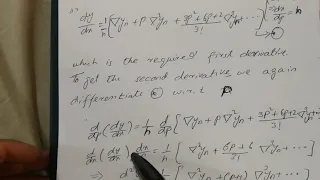 dy/dx = 1/h [ ∇yn + P ∇²yn + (3P²+6P+2)/3! ∇³yn + ... ] dx/dp = h
which is the required first derivative
To get the second derivative we again
differentiate w.r.t P
d/dp (dy/dx) = 1/h d/dp [ ∇yn + P ∇²yn + (3P²+6P+2)/3! ∇³yn
d/dx (dy/dx) dx/ = 1/h [ ∇²yn + (6P+6)/3! ∇³yn + ... ]